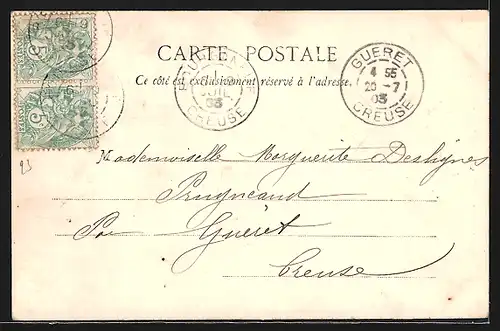 CARTE POSTALE
Ce côté est exclusivement réservé à l'adresse.
GUERET
4 55
20 -7
03
CREUSE
03
CREUSE
5
5
23
Mademoiselle Marguerite Deslignes
Par Guéret
Creuse